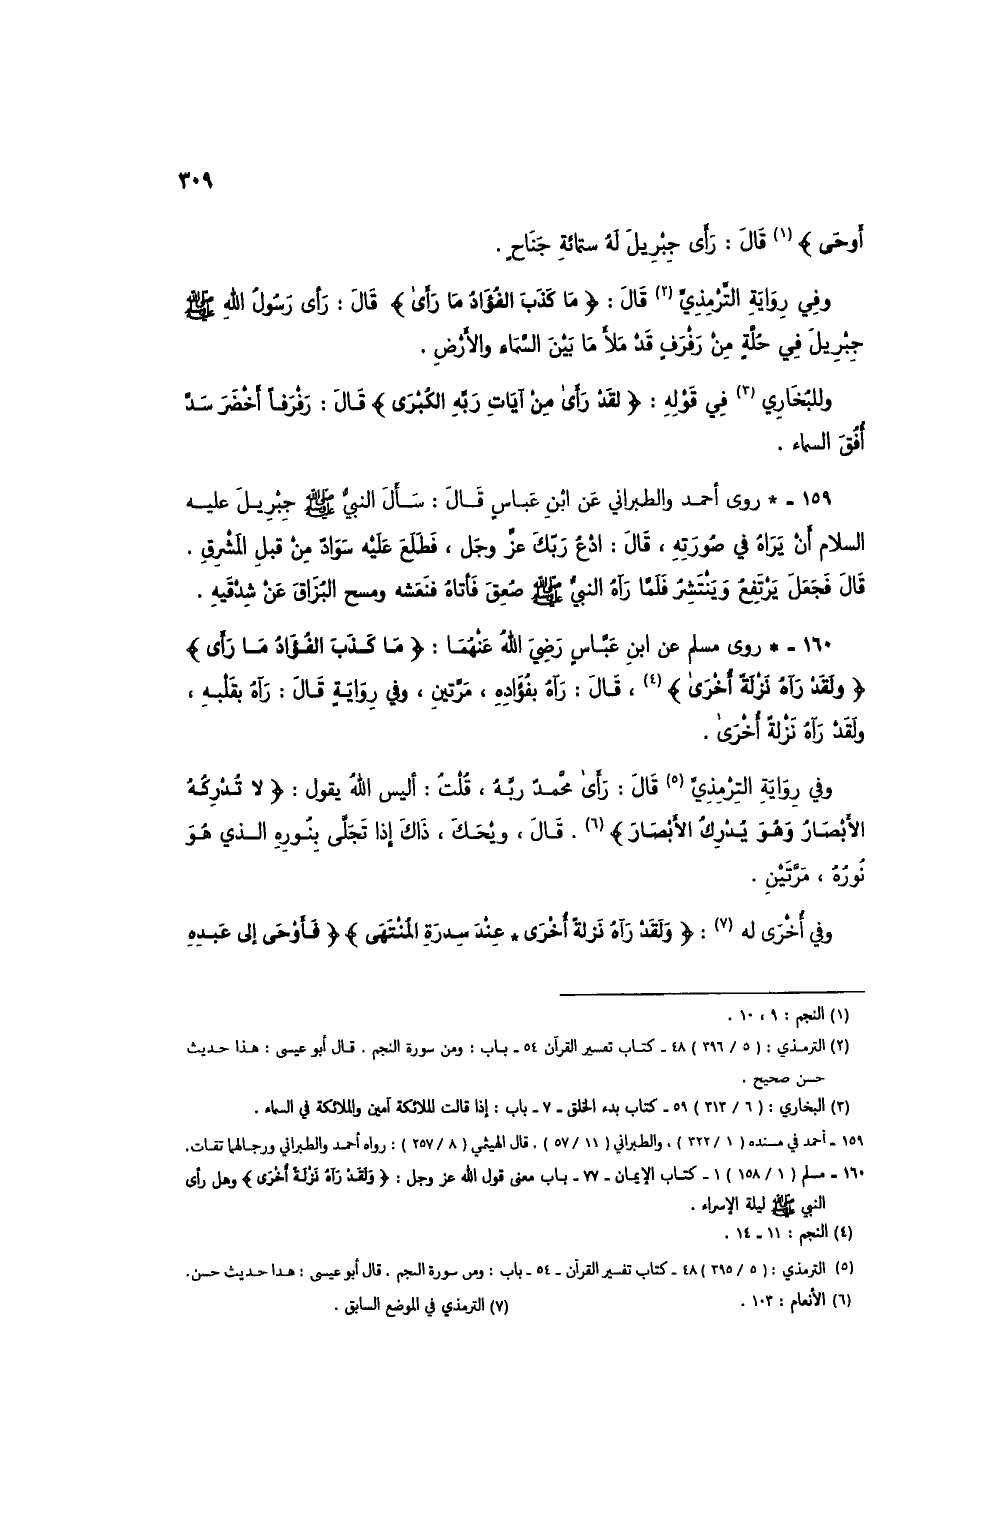 ٣٠٩
أَوحَى ﴾ (١) قَالَ : رَأَى جِبْرِيلَ لَهُ ستمائةِ جَنَاحٍ .
وفِي رِوَايَةِ التِّرْمِذِيِّ (٢) قَالَ : ﴿ مَا كَذَبَ الفُؤَادُ مَا رَأَىٰ ﴾ قَالَ : رَأى رَسُولُ اللهِ ﷺ
جِبْرِيلَ فِي حُلَّةٍ مِنْ رَفْرَفٍ قَدْ مَلأَ مَا بَيْنَ السَّمَاء والأَرْضِ .
وللبُخَارِي (٣) فِي قَوْلِهِ : ﴿ لقَدْ رَأَىٰ مِنْ آيَاتِ رَبِّهِ الكُبْرَى ﴾ قَالَ : رَفْرَفاً أَخْضَرَ سَدَّ
أُفُقَ السماء .
١٥٩ ـ * روى أحمد والطبراني عَن ابْنِ عَباسٍ قَالَ : سَأَلَ النبيُّ ﷺ جِبْرِيلَ عليه
السلام أَنْ يَرَاهُ في صُورَتِهِ ، قَالَ : ادْعُ رَبّكَ عزَّ وجَل ، فَطَلَعَ عَلَيْه سَوَادٌ مِنْ قبلِ المَشْرِقِ .
قَالَ فَجَعَلَ يَرْتَفِعُ وَيَنْتَشِرُ فَلَمَّا رَآهُ النبيُّ ﷺ صُعِقَ فَأتاهُ فنَعَشه ومسح البُزَاقَ عَنْ شِدْقَيهِ .
١٦٠ ـ * روى مسلم عن ابنِ عَبَّاسٍ رَضِيَ اللهُ عَنْهُمَا : ﴿ مَا كَذَبَ الفُؤَادُ مَا رَأَى ﴾
﴿ ولَقَدْ رَآهُ نَزْلَةً أُخْرَىٰ ﴾ (٤) ، قَالَ : رَآهُ بفُؤَادِهِ ، مَرَّتينِ ، وفي روَايَةٍ قَالَ : رَآهُ بقَلْبهِ ،
ولَقَدْ رَآهُ نَزْلةً أُخْرَىٰ .
وفي روَايَةِ التِرْمِذيِّ (٥) قَالَ : رَأَىٰ مُحَّمدٌ ربَّهُ ، قُلْتُ : أليس اللهُ يقول : ﴿ لا تُدْرِكُهُ
الأَبْصَارُ وَهُوَ يُدْرِكُ الأَبْصَارَ ﴾ (٦) . قَالَ ، ويْحَكَ ، ذَاكَ إذا تَجَلَّى بِنُورِهِ الذي هُوَ
نُورُهُ ، مَرَّتَيْنِ .
وفي أُخْرَى له (٧) : ﴿ وَلَقَدْ رَآهُ نَزلةً أُخْرَى * عِنْدَ سِدرَةِ المُنْتَهَى ﴾ ﴿ فَأَوْحَى إلى عَبدِهِ
(١) النجم : ٩ ، ١٠ .
(٢) الترمذي : ( ٥ / ٣٩٦ ) ٤٨ ـ كتاب تفسير القرآن ٥٤ ـ باب : ومن سورة النجم . قال أبو عيسى : هذا حديث
حسن صحيح .
(٣) البخاري : ( ٦ / ٣١٣ ) ٥٩ ـ كتاب بدء الخلق ـ ٧ ـ باب : إذا قالت الملائكة آمين والملائكة في السماء .
١٥٩ ـ أحمد في مسنده ( ١ / ٣٢٢ ) ، والطبراني ( ١١ / ٥٧ ) . قال الهيثمي ( ٨ / ٢٥٧ ) : رواه أحمد والطبراني ورجالهما ثقات.
١٦٠ ـ مسلم ( ١ / ١٥٨ ) ١ ـ كتاب الإيمان ـ ٧٧ ـ باب معنى قول الله عز وجل : ﴿ وَلَقَدْ رَآهُ نَزْلَةً أُخْرَى ﴾ وهل رأى
النبي ﷺ ليلة الإسراء .
(٤) النجم : ١١ ـ ١٤ .
(٥) الترمذي : ( ٥ / ٣٩٥ ) ٤٨ ـ كتاب تفسير القرآن ـ ٥٤ ـ باب : ومن سورة النجم . قال أبو عيسى : هذا حديث حسن.
(٦) الأنعام : ١٠٣ .
(٧) الترمذي في الموضع السابق .